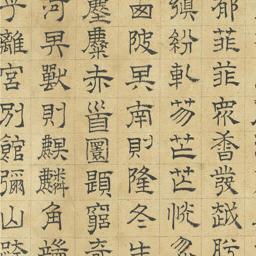 郁菲菲眾香發越肸
縝紛軋芴芒芒恍忽
西陂其南則隆冬生
麈麋赤首圜題窮奇
河其獸則麒麟角端
乎離宮別館彌山跨